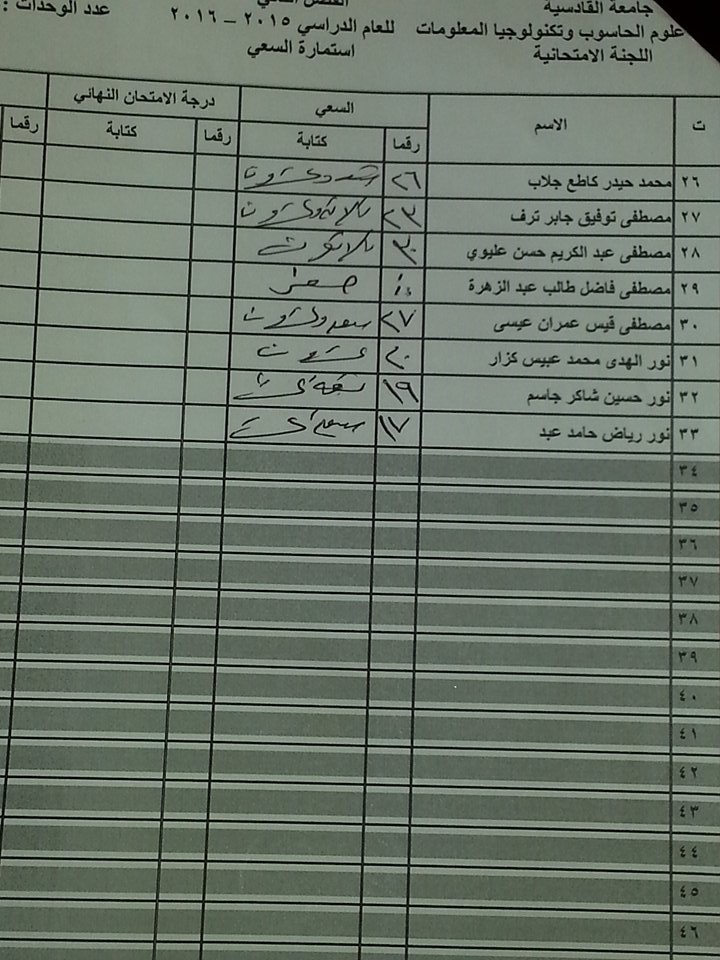 جامعة القادسية
علوم الحاسوب وتكنولوجيا المعلومات للعام الدراسي ٢٠١٥ – ٢٠١٦ عدد الوحدات :
اللجنة الامتحانية استمارة السعي
ت الاسم السعي درجة الامتحان النهائي
رقما كتابة رقما كتابة رقما
٢٦ محمد حيدر كاطع جلاب ٢٦ ستة وعشرون
٢٧ مصطفى توفيق جابر ترف ٢٣ ثلاثة وعشرون
٢٨ مصطفى عبد الكريم حسن عليوي ٣٠ ثلاثون
٢٩ مصطفى فاضل طالب عبد الزهرة صفر
٣٠ مصطفى قيس عمران عيسى ٢٧ سبعة وعشرون
٣١ نور الهدى محمد عبيس كزار ٢٠ عشرون
٣٢ نور حسين شاكر جاسم ١٩ تسعة عشر
٣٣ نور رياض حامد عبد ١٧ سبعة عشر
٣٤
٣٥
٣٦
٣٧
٣٨
٣٩
٤٠
٤١
٤٢
٤٣
٤٤
٤٥
٤٦